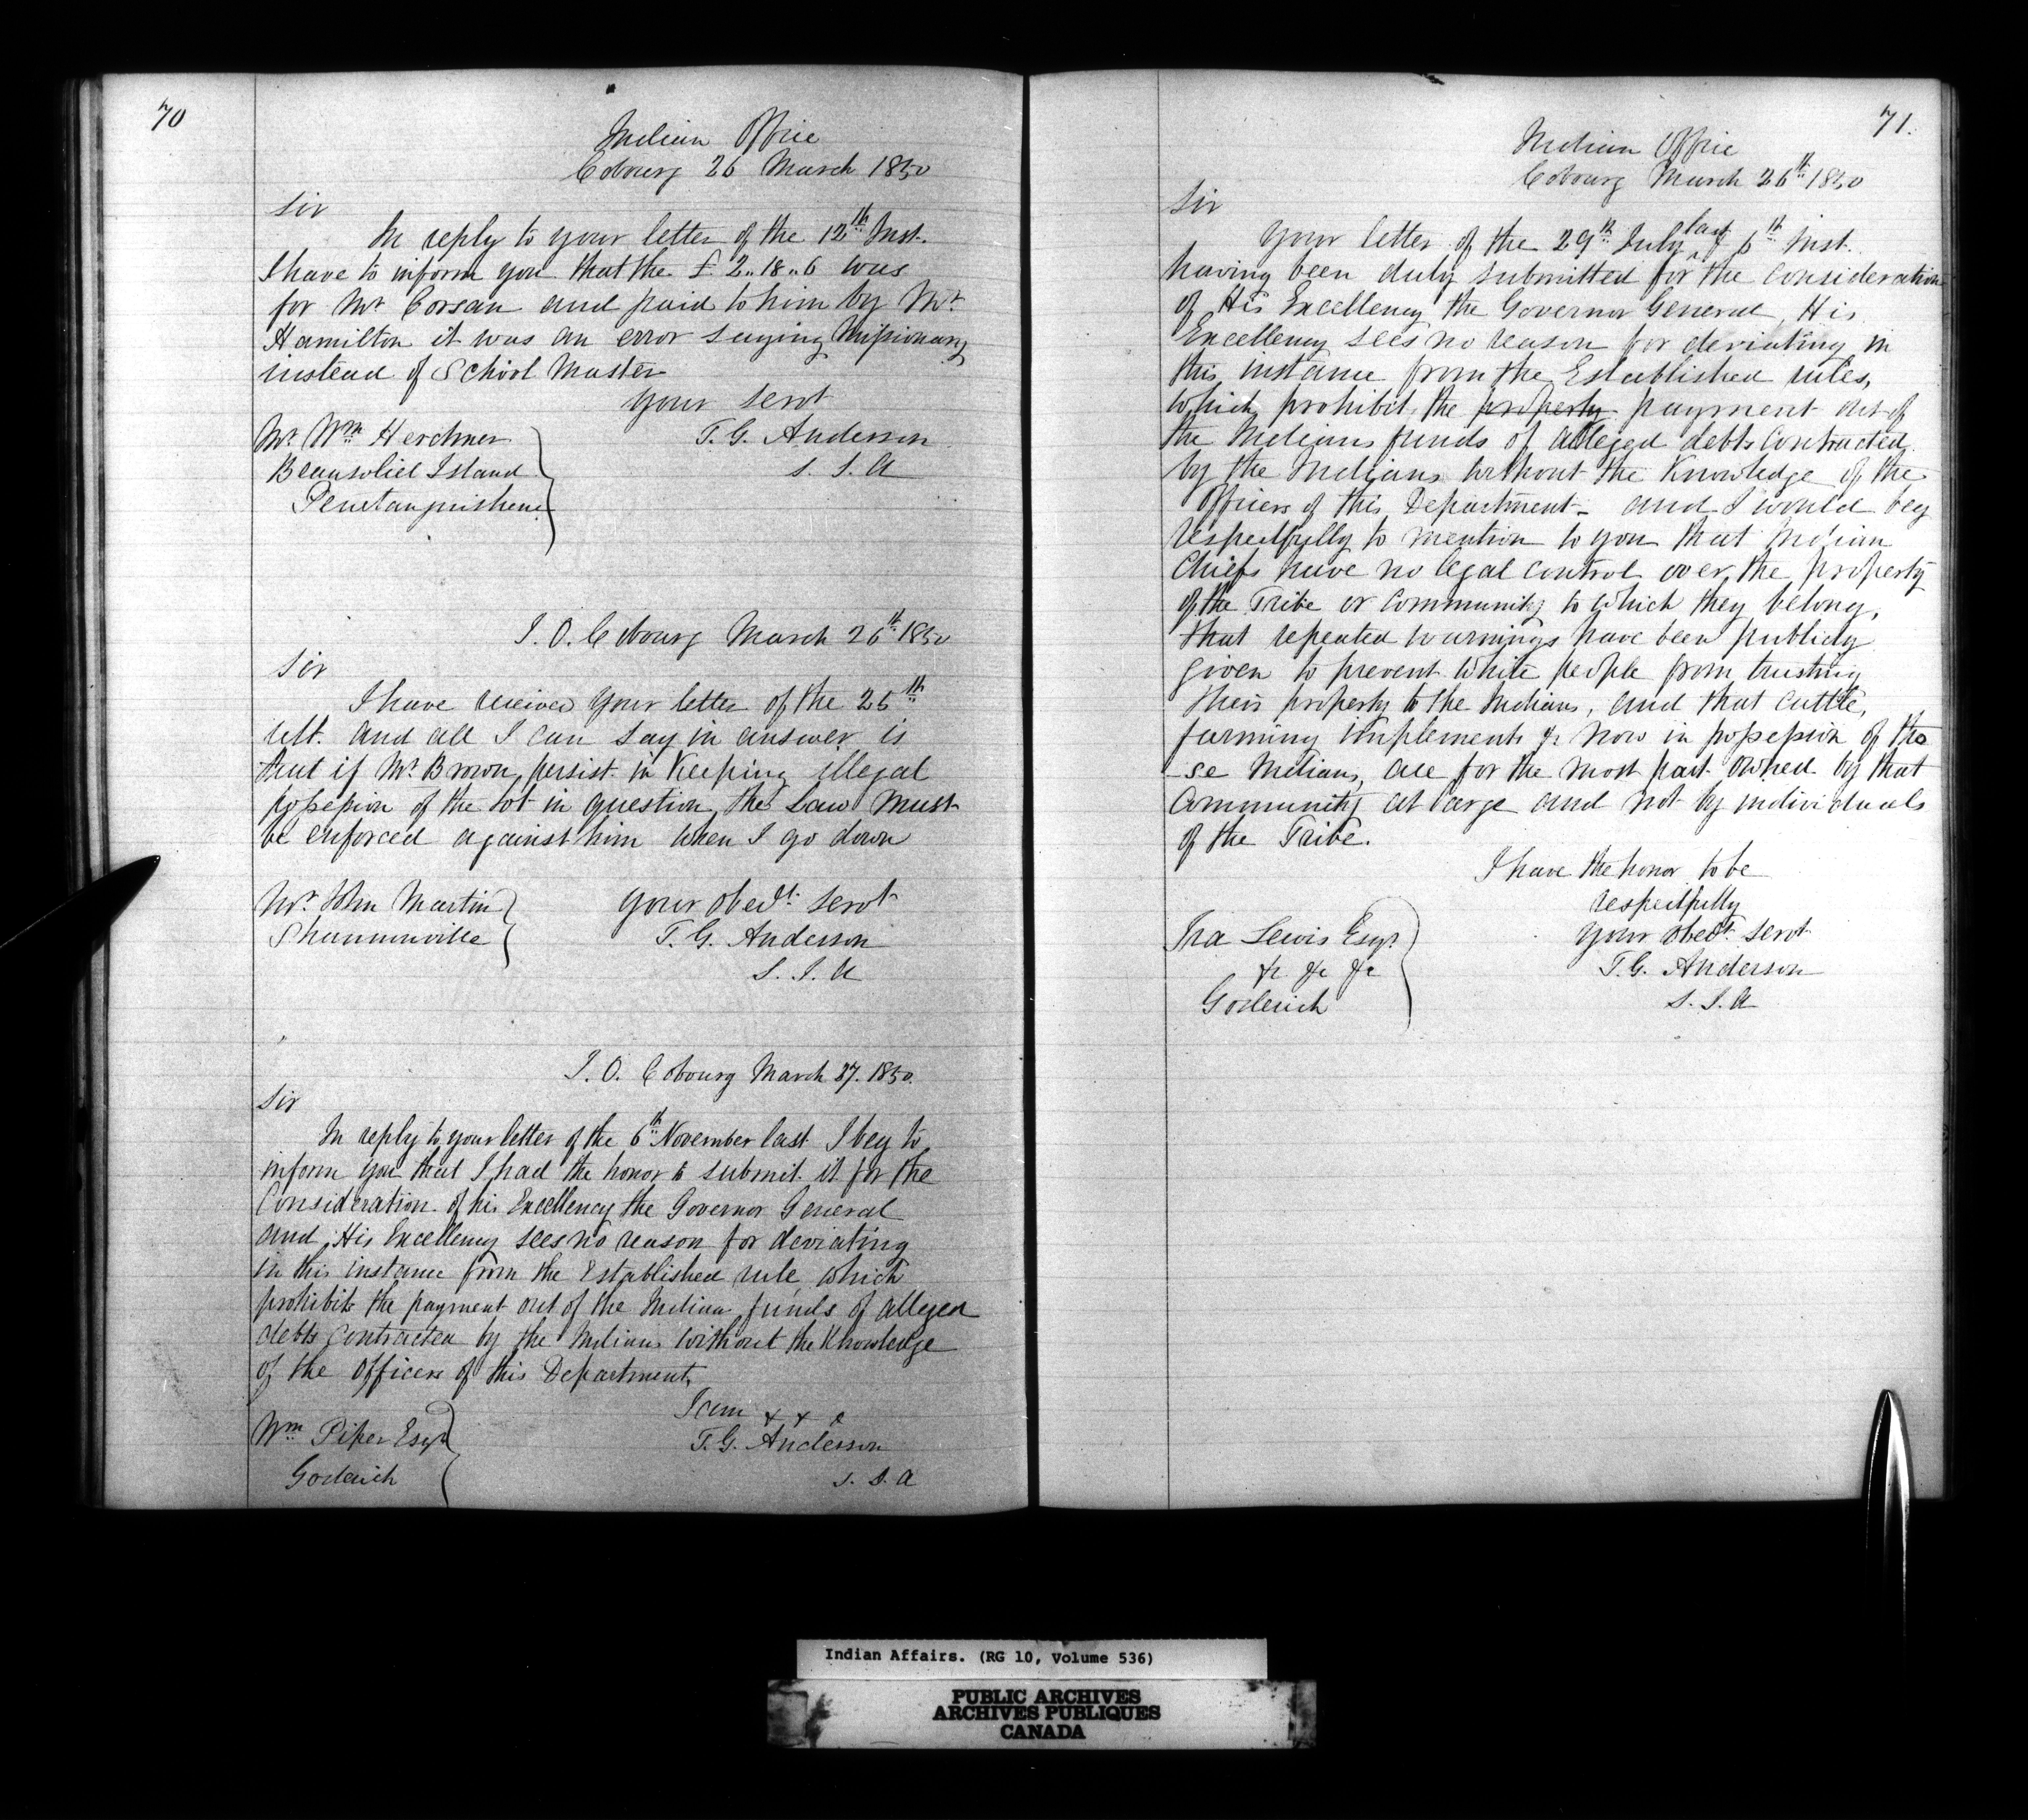 70
Indian Office
Cobourg 26 March 1850
Sir
In reply to your letter of the 12th Inst.
I have to inform you that the £2..18..6 was
for Mr Corsan and paid to him by Mr
Hamilton it was an error saying Missionary
instead of School Master
Your Servt
T. G. Anderson
S. I. A
Mr Wm Herchmer
Beausoliel Island
Penetanguishene
I. O. Cobourg March 26th 1850
Sir
I have received your letter of the 25th
ult. and all I can say in answer is
that if Mr Brown persist in Keeping illegal
possession of the lot in question, the Law must
be enforced against him when I go down
Your obedt. Servt
T. G. Anderson
S. I. A
Mr. John Martin
Shannonville
I. O. Cobourg March 27. 1850.
Sir
In reply to your letter of the 6th November last I beg to
inform you that I had the honor to submit it for the
Consideration of his Excellency the Governor General
and His Excellency sees no reason for deviating
in this instance from the Established rule, which
prohibits the payment out of the Indian funds of alleged
debts contracted by the Indians without the Knowledge
of the Officers of this Department,
I am & & c
T. G. Anderson
S. I. A
Wm Piper Esqr
Goderich
71.
Indian Office
Cobourg March 26th 1850
Sir
Your letter of the 29th July last & 6th Inst.
having been duly submitted for the consideration
of His Excellency the Governor General, His
Excellency sees no reason for deviating in
this instance from the Established rules,
which prohibit the property payment out of
the Indians funds of alleged debts contracted
by the Indians without the Knowledge of the
Officers of this Department - and I would beg
respectfully to mention to you that Indian
Chiefs have no legal control over the property
of the Tribe or community to which they belong,
that repeated warnings have been publicly
given to prevent White people from trusting
their property to the Indians, and that cattle,
farming implements &c now in possession of tho
-se Indians, are for the most part owned by that
Community at large and not by individuals
of the Tribe.
I have the honor to be
respectfully
Your obedt. Servt
T. G. Anderson
S. I. A
Ira Lewis Esqr.
&c &c &c
Goderich
Indian Affairs. (RG 10, Volume 536)
PUBLIC ARCHIVES
ARCHIVES PUBLIQUES
CANADA